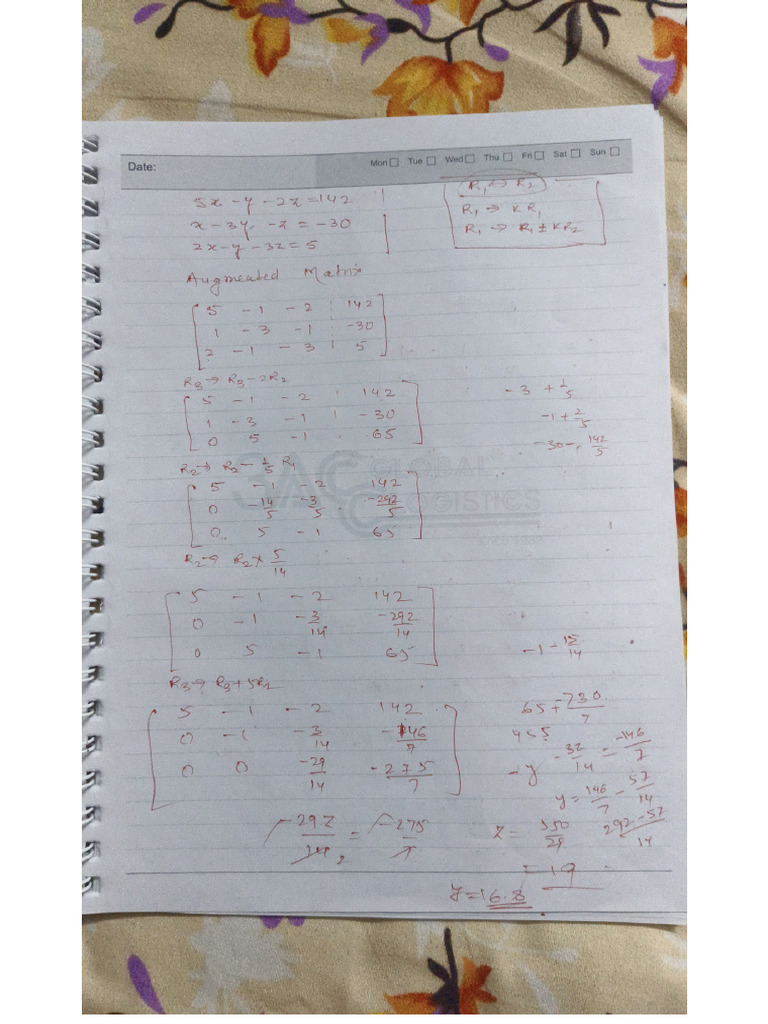 Date:
Mon Tue Wed Thu Fri Sat Sun
5x - y - 2z = 142
x - 3y - z = -30
2x - y - 3z = 5
R1 ↔ R2
R1 → KR1
R1 → R1 ± KR2
Augmented Matrix
5 -1 -2 : 142
1 -3 -1 : -30
2 -1 -3 : 5
R3 → R3 - 2R2
5 -1 -2 : 142
1 -3 -1 : -30
0 5 -1 . 65
-3 + 1/5
-1 + 2/5
-30 - 142/5
R2 → R2 - 1/5 R1
3ACC GLOBAL
LOGISTICS
5 -1 -2 142
0 -14/5 -3/5 -292/5
0 5 -1 65
R2 → R2 × 5/14
5 -1 -2 142
0 -1 -3/14 -292/14
0 5 -1 65
-1 - 15/14
R3 → R3 + 5R2
5 -1 -2 142
0 -1 -3/14 -146/7
0 0 -29/14 -275/7
65 + -730/7
455
-y - 3z/14 = -146/7
y = 146/7 - 57/14
292 - 57/14
-29z/14 2 = -275/7
z = 550/29
= 19
y = 16.8